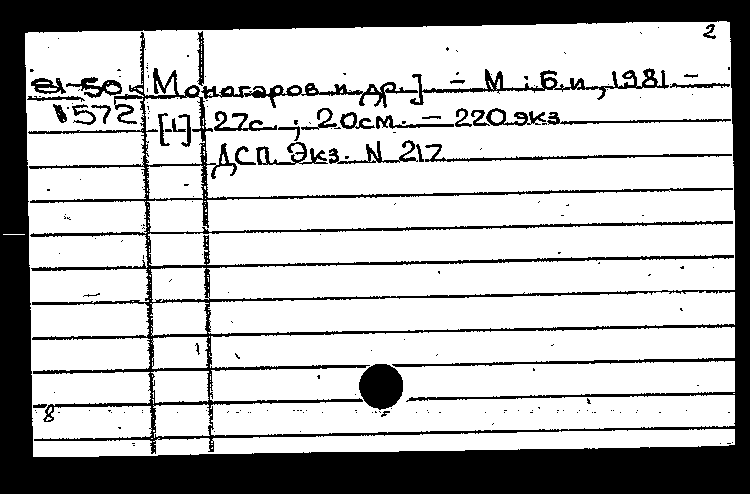 2
81-50к Моногаров и др.] - М : Б.и., 1981. -
1572 [1] 27с. ; 20см. - 220экз.
ДСП. Экз. N 217
8